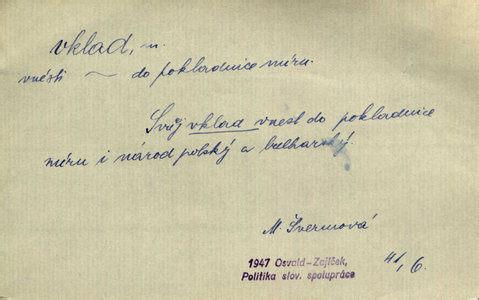 vklad, m.
vnésti ~ do pokladnice míru.
Svůj vklad vnesl do pokladnice
míru i národ polský a bulharský.
M. Švermová
1947 Osvald-Zajíček,
Politika slov. spolupráce
41, 6.